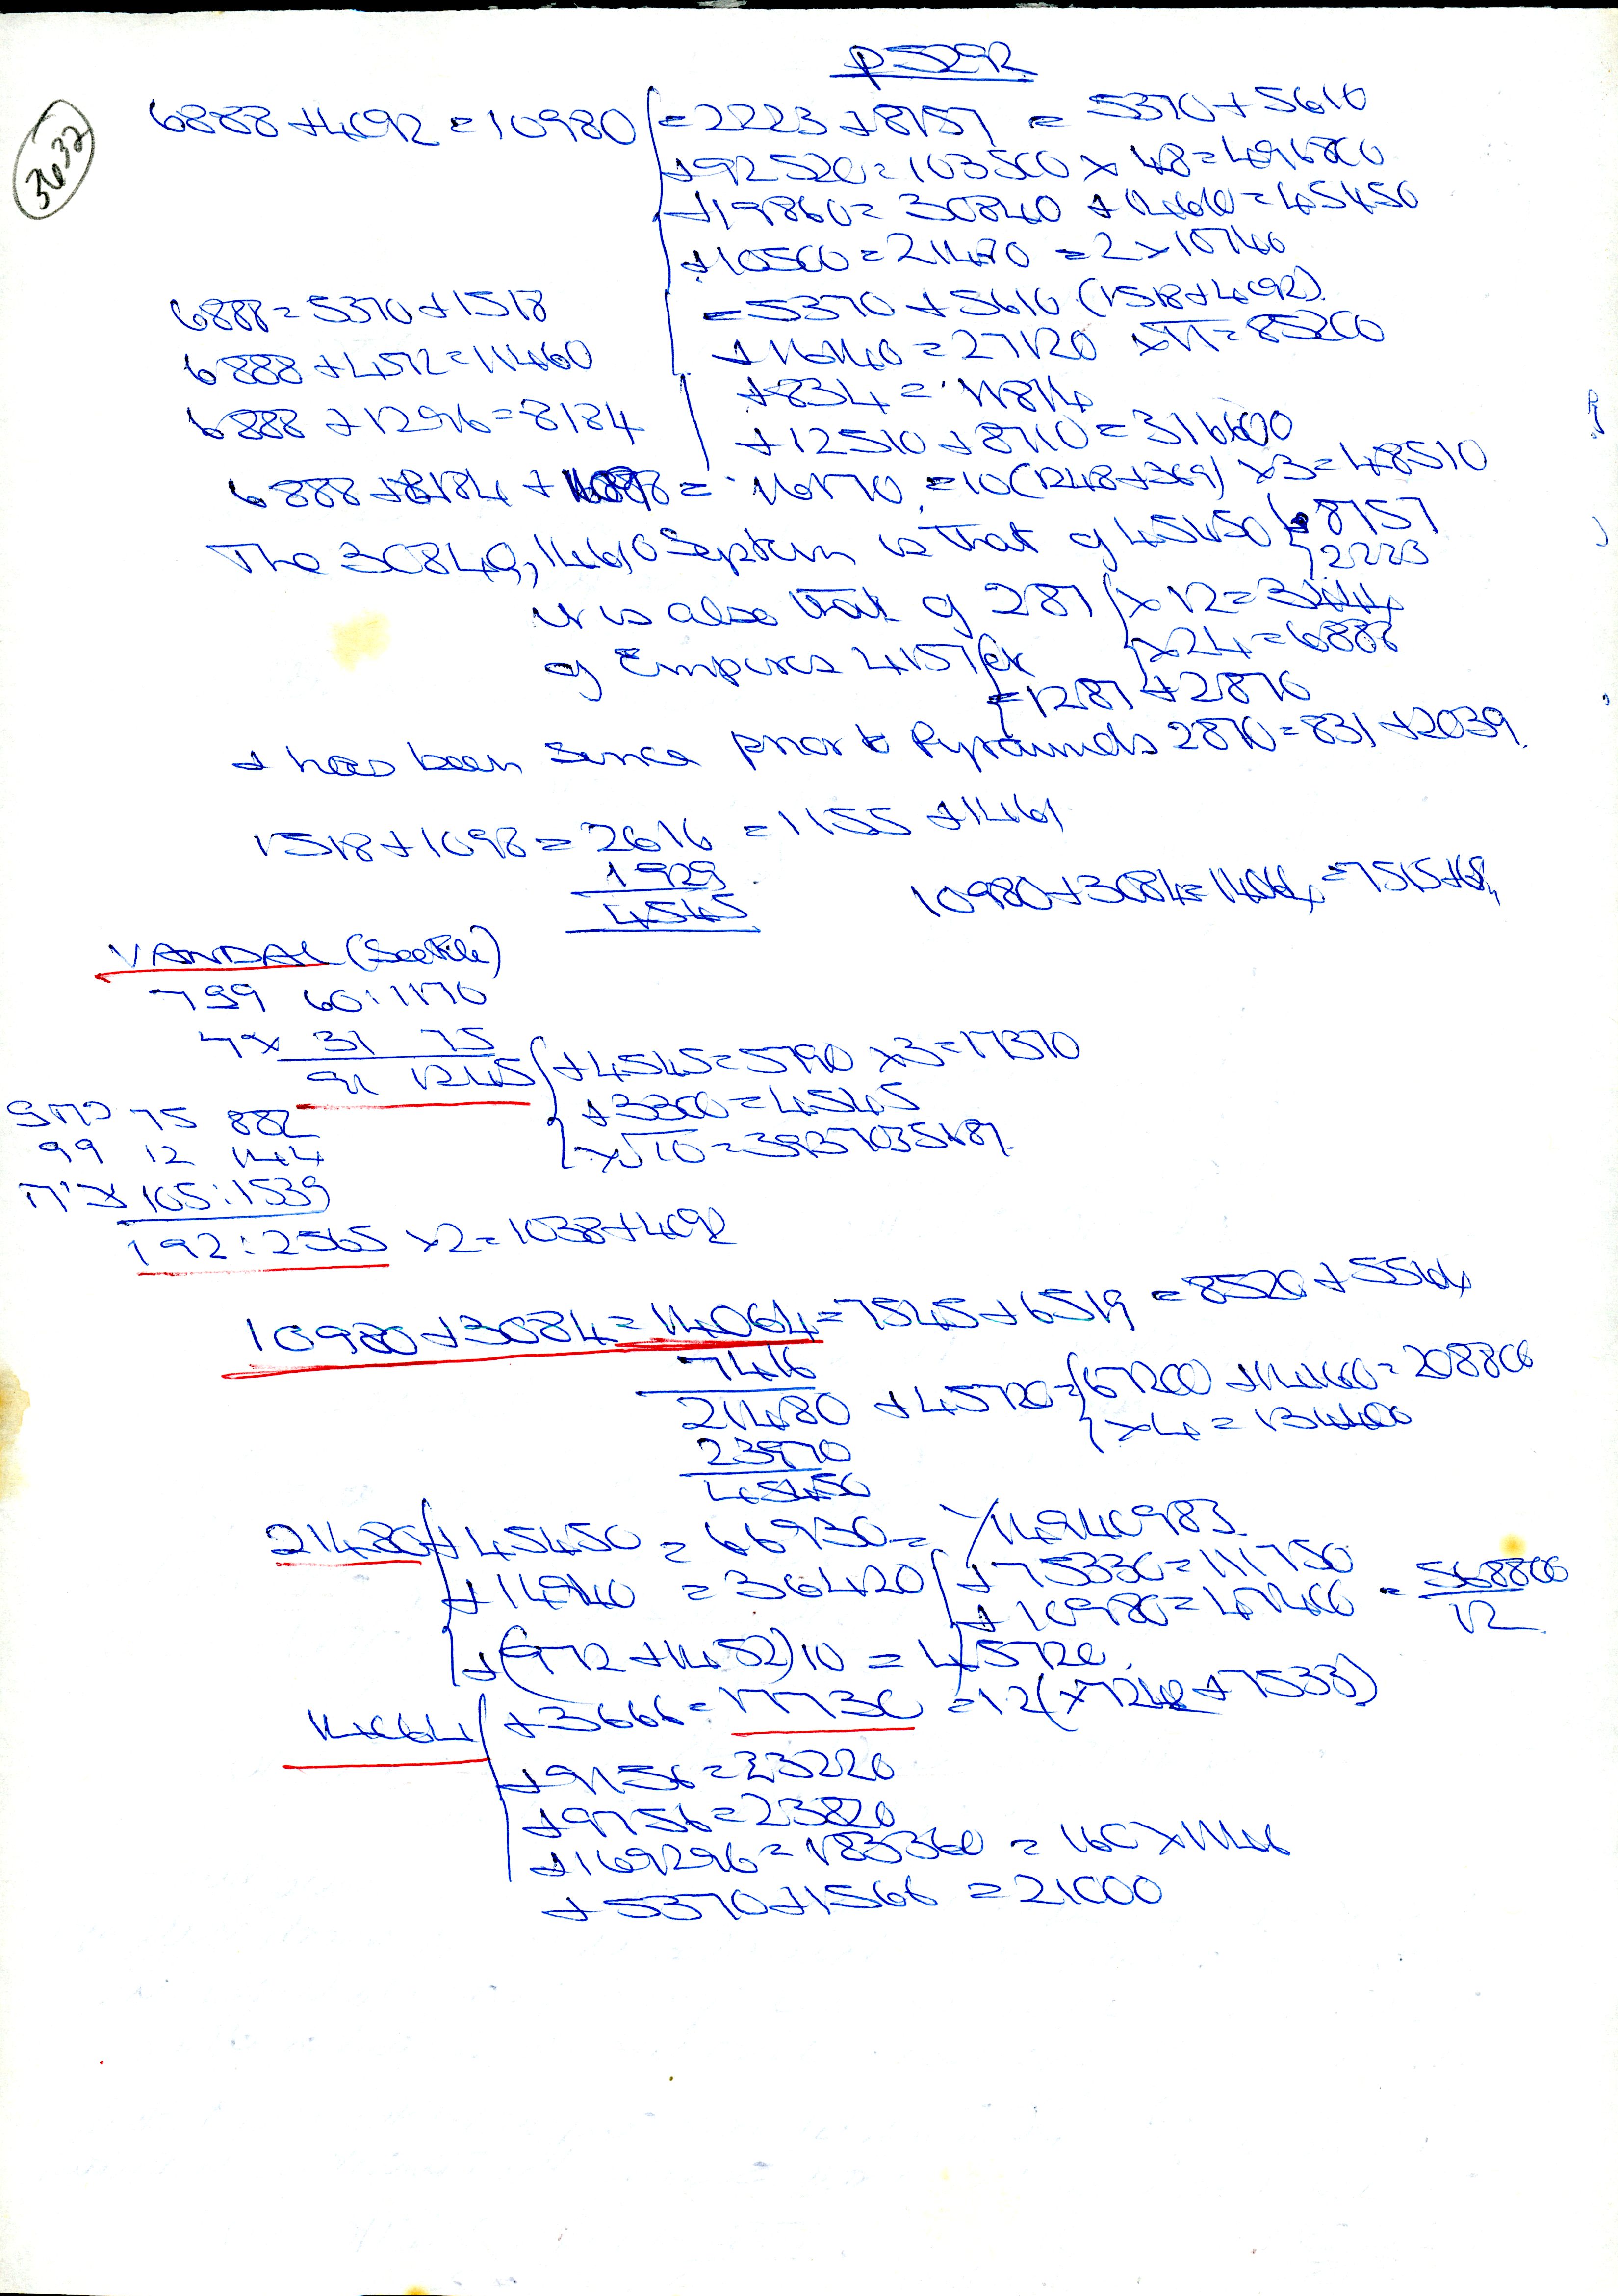 p 5292
3632
6888 + 4092 = 10980 { = 2223 + 8757 = 5370 + 5610
+ 92520 = 103500 × 48 = 496800
+ 19860 = 30840 + 14610 = 45450
+ 10500 = 21480 = 2 × 10740
6888 = 5370 + 1518
= 5370 + 5610 (1518 + 4092)
6888 + 4572 = 11460
+ 16140 = 27120 × π = 85200
+ 834 = 11814
6888 + 1296 = 8184
+ 12510 + 8710 = 31600
6888 + 8184 + 1098 = 16170 = 10(1248 + 369) × 3 = 48510
The 30840, 14610 Septum is that of 45450 { 8757
2223
it is also that of 287 { × 12 = 3444
× 24 = 6888
of Empires 4157
= 1287 + 2870
+ has been since prior to Pyramids 2870 = 831 + 2039
1518 + 1098 = 2616 = 1155 + 1461
1929
4545
10980 + 3084 = 14064
VANDAL (Seattle)
799 60 : 1170
31 75
91 1245 { + 4545 = 5790 × 3 = 17370
+ 3300 = 4545
× √10 = 3937035687
75 882
99 12 144
105 : 1539
192 : 2565 × 2 = 1038 + 4092
10980 + 3084 = 14064 = 7545 + 6519 = 8520 + 5544
7416
21480 + 45720 = { 67200 + 14160 = 208800
× 4 = 134400
23970
45450
21480 { + 45450 = 66930 = 14940983
+ 14940 = 36420 { + 75330 = 111750
+ 10980 = 47400 = 568800
12
+ (972 + 1452)10 = 45720
14064 { + 3666 = 17730 = 12(× 7240 + 7533)
+ 9156 = 23220
+ 9756 = 23820
+ 169296 = 183360 = 160 × 1146
+ 5370 + 1566 = 21000